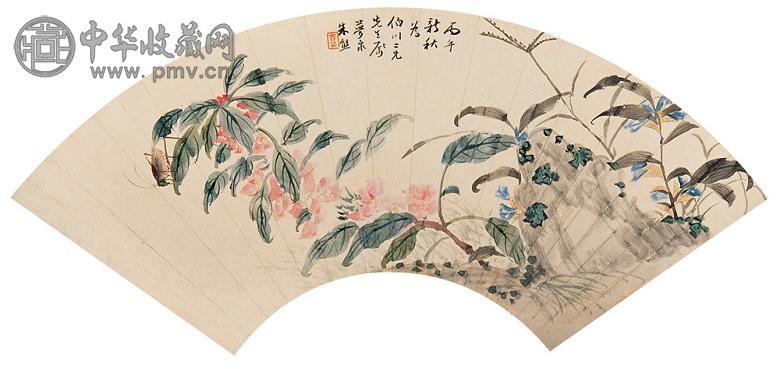 中华收藏网
www.pmv.cn
丙午
新秋
为
伯川二兄
先生属
梦泉
朱熊